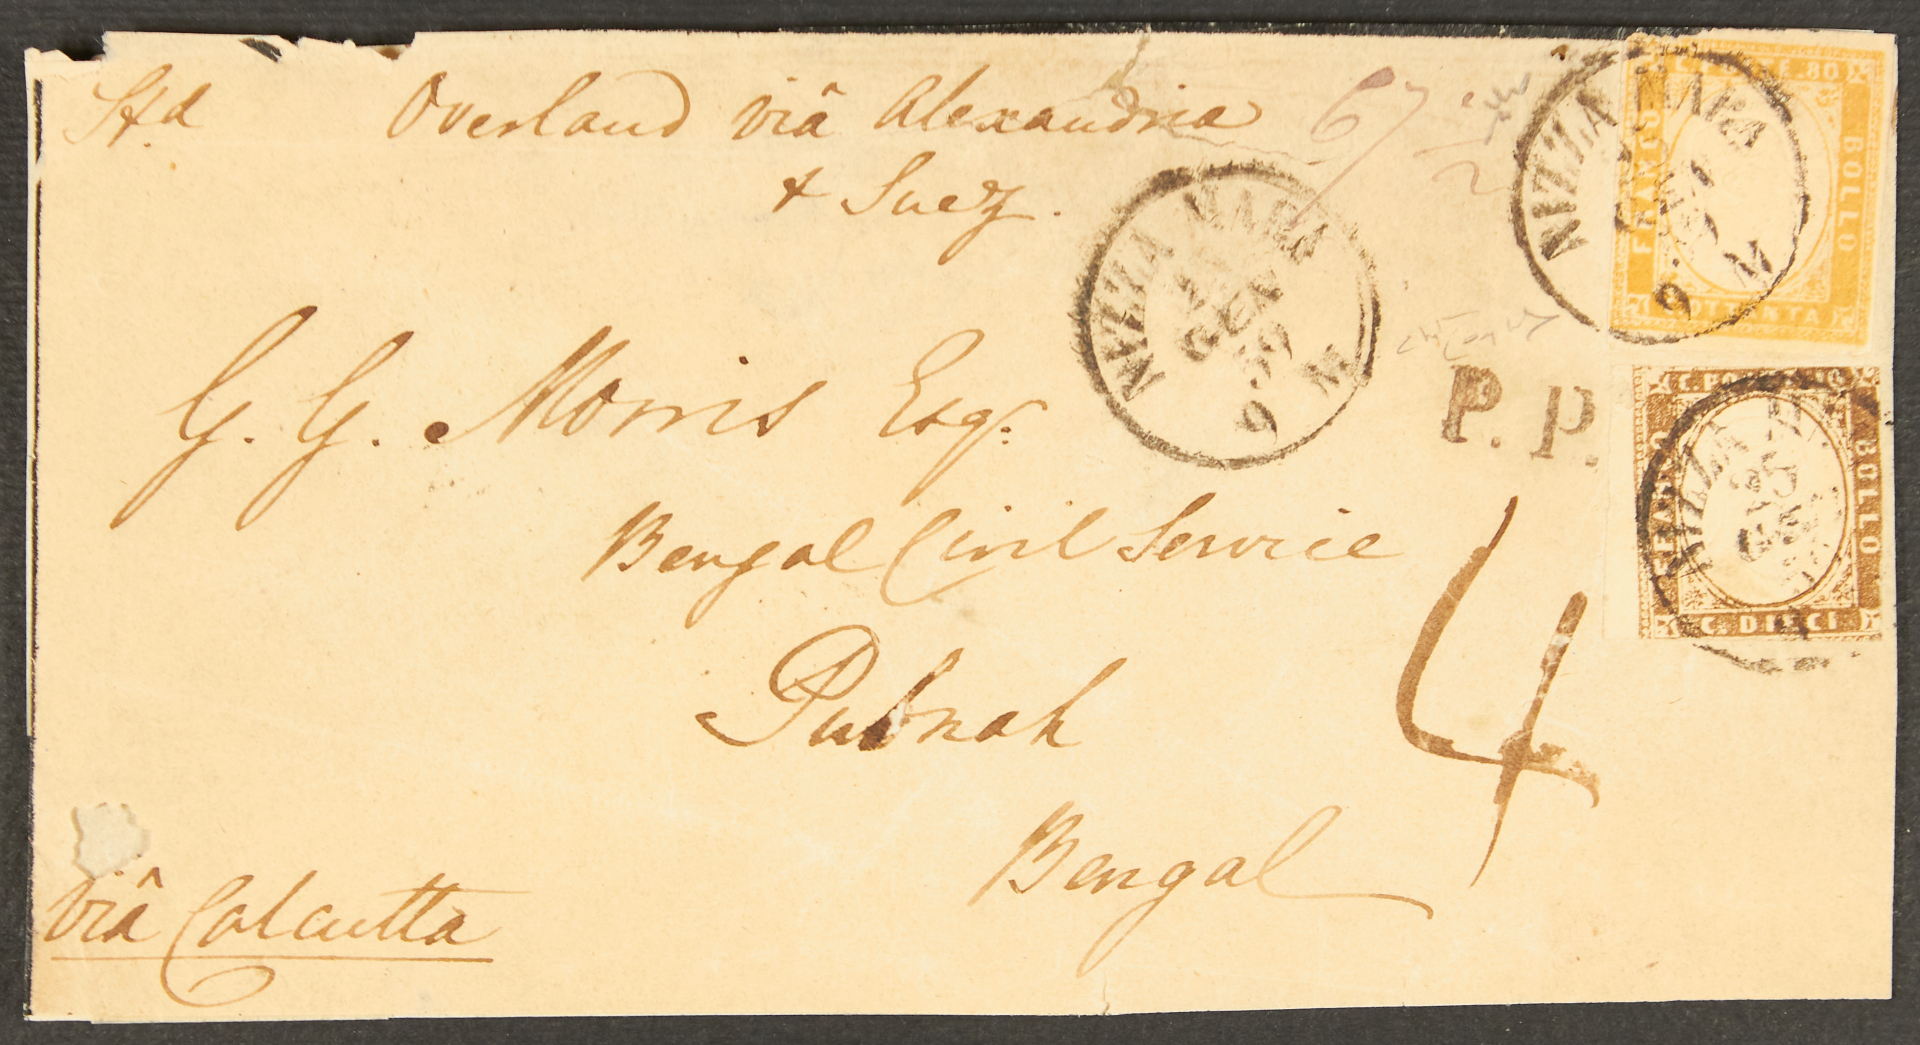 Overland viâ Alexandria
& Suez.
G. G. Morris Esqr.
Bengal Civil Service
Pubnah
Bengal
viâ Calcutta
4
67
2
NIZZA MARA
GEN
59
9 M
P. P.
NIZZA MARA
9 M
80
FRANCO
BOLLO
OTTANTA
NIZZA
25
GEN
BOLLO
C. DIECI